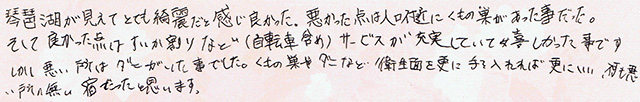 琵琶湖が見えてとても綺麗だと感じ良かった。悪かった点は入口付近にくもの巣があった事だった。
そして良かった点はすいか割りなど(自転車含め)サービスが充実していて嬉しかった事です
しかし悪い所はダニがいた事でした。くもの巣やダニなど衛生面を更に手入れすれば更にいい、何も悪
い所の無い宿だったと思います。